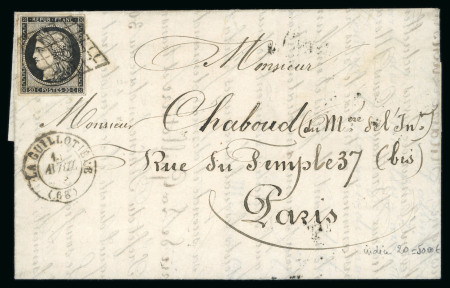 REPUB. FRANC.
20 C POSTES 20 C
Monsieur
Monsieur Chaboud (du Mère de l'Int)
Rue du Temple 37 (bis)
Paris
LA GUILLOTIERE
AVRIL
(68)